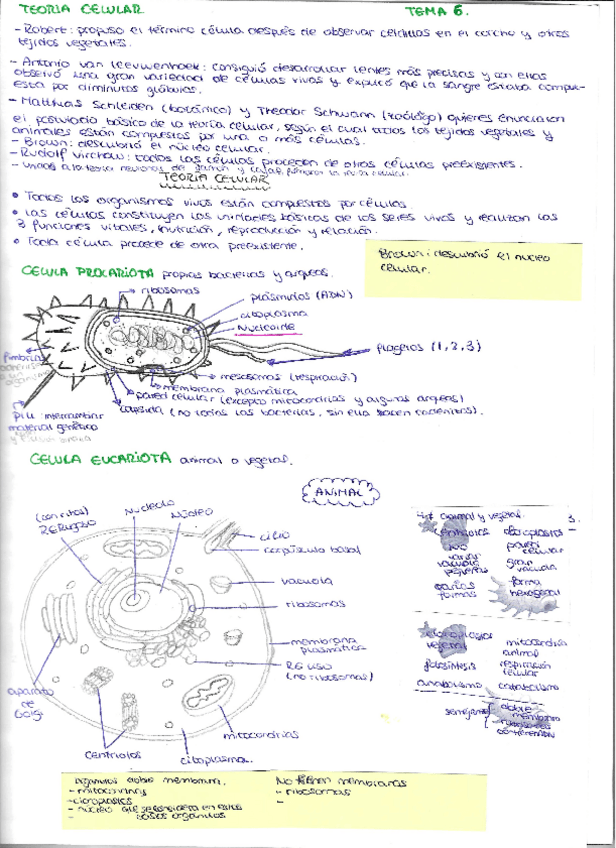 TEORIA CELULAR
TEMA 6.
- Robert: propuso el término célula después de observar celdillas en el corcho y otros
tejidos vegetales.
- Antonio van Leeuwenhoek: consiguió desarrollar lentes más precisas y con ellas
observó una gran variedad de células vivas y explicó que la sangre estaba compu-
esta por diminutos glóbulos.
- Matthias Schleiden (botánico) y Theodor Schwann (zoólogo) quienes enunciaron
el postulado básico de la teoría celular, según el cual todos los tejidos vegetales y
animales están compuestos por una o más células.
- Brown: descubrió el núcleo celular.
- Rudolf Virchow: todas las células proceden de otras células preexistentes.
TEORÍA CELULAR
• Todos los organismos vivos están compuestos por células.
• Las células constituyen las unidades básicas de los seres vivos y realizan las
3 funciones vitales, nutrición, reproducción y relación.
• Toda célula procede de otra preexistente.
Brown: descubrió el nucleo
celular.
CELULA PROCARIOTA propias bacterias y arqueas.
ribosomas
plásmidos (ADN)
citoplasma
Nucleoide
flagelos (1,2,3)
fimbrias
mesosomas (respiración)
membrana plasmática
pared celular (excepto mitocondrias y algunas arqueas)
capsula (no todas las bacterias, sin ella hacen
pili intercambiar
material genético
CELULA EUCARIOTA animal o vegetal.
ANIMAL
Nucleolo
Núcleo
cilio
corpúsculo basal
vacuola
ribosomas
membrana
plasmática
RE LISO
(no ribosomas)
mitocondrias
citoplasma
centriolos
aparato
de
Golgi
animal y vegetal
centriolos
cloroplastos
pared
celular
vacuolas
pequeñas
gran
vacuola
varias
formas
forma
hexagonal
cloroplastos
vegetal
mitocondria
animal
fotosíntesis
respiración
celular
anabolismo
catabolismo
doble
membrana
ribosomas
Organulos doble membrana.
- mitocondrias
- cloroplastos
- núcleo
No tienen membranas
- ribosomas
-